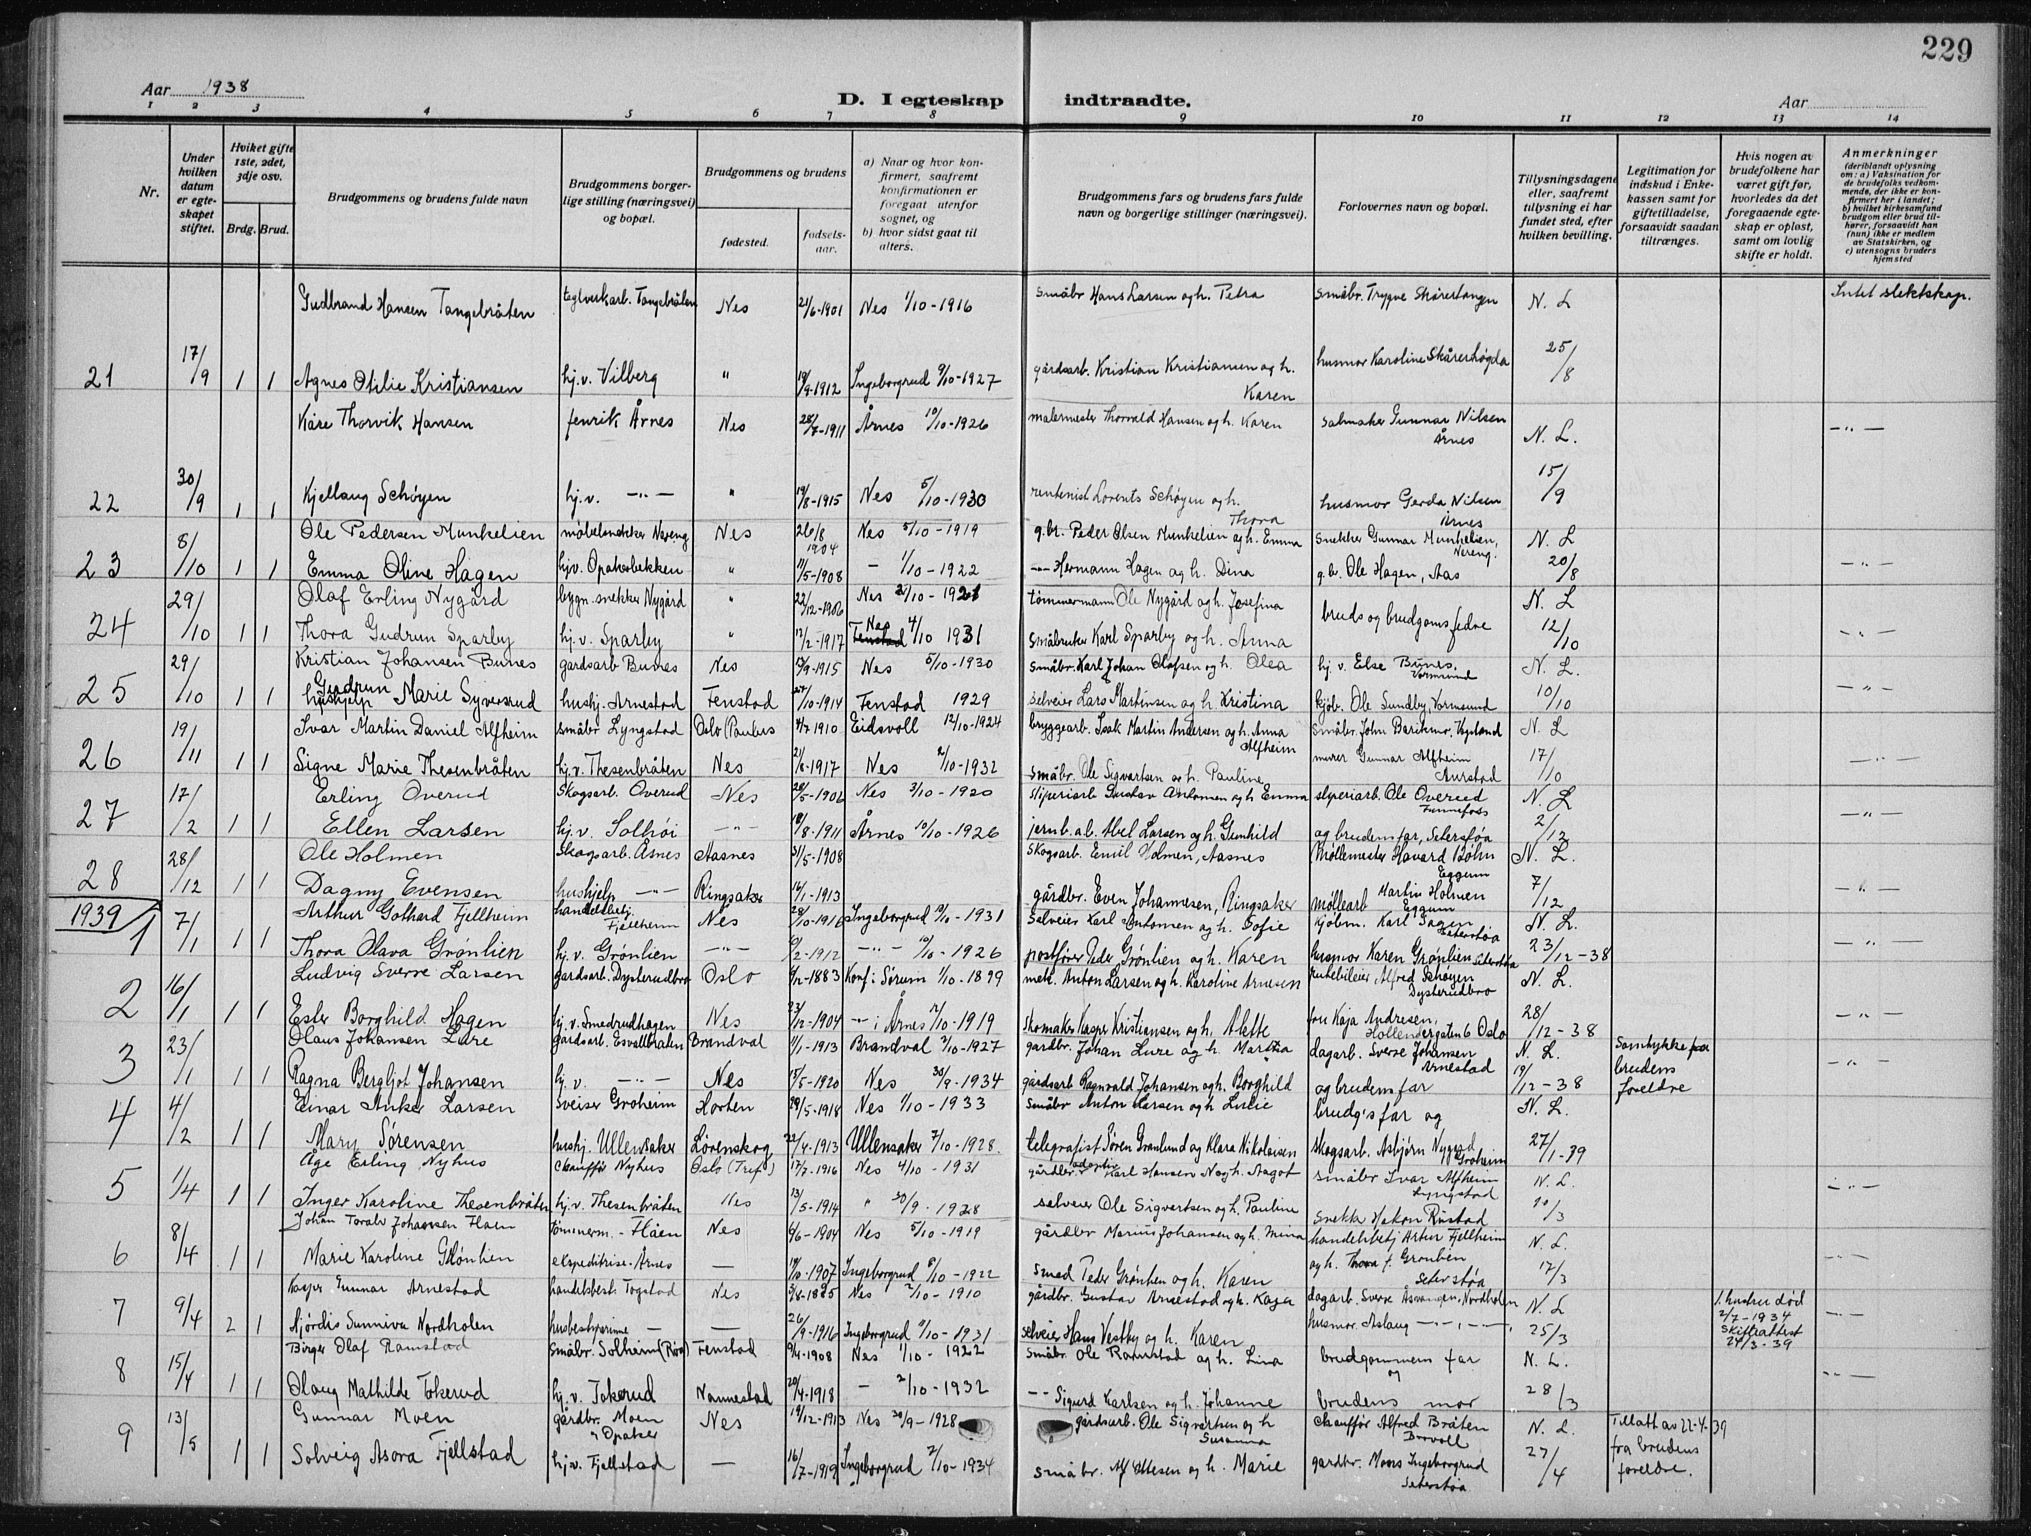 229
Aar 1938
D. I egteskap indtraadte.
Aar
1 2 3 4 5 6 7 8 9 10 11 12 13 14
Nr.
Under hvilken datum er egteskapet stiftet.
Hviket gifte 1ste, 2det, 3dje osv.
Brdg. Brud.
Brudgommens og brudens fulde navn
Brudgommens borgerlige stilling (næringsvei) og bopæl.
Brudgommens og brudens
fødested.
fødselsaar.
a) Naar og hvor konfirmert, saafremt konfirmationen er foregaat utenfor sognet, og
b) hvor sidst gaat til alters.
Brudgommens fars og brudens fars fulde navn og borgerlige stillinger (næringsvei).
Forlovernes navn og bopæl.
Tillysningsdagene eller, saafremt tillysning ei har fundet sted, efter hvilken bevilling.
Legitimation for indskud i Enkekassen samt for giftetilladelse, forsaavidt saadan tiltrænges.
Hvis nogen av brudefolkene har været gift før, hvorledes da det foregaaende egteskap er opløst, samt om lovlig skifte er holdt.
Anmerkninger
(deriblandt oplysning om: a) Vaksination for de brudefolks vedkommende, der ikke er konfirmert her i landet; b) hvilket kirkesamfund brudgom eller brud tilhører, forsaavidt han (hun) ikke er medlem av Statskirken, og c) utensogns bruders hjemsted
Gudbrand Hansen Tangebråten teglverkarb. Tangebråten Nes 21/6-1901 Nes 1/10-1916 småbr Hans Larsen og h. Petra småbr. Trygve Skårertangen N. L Intet slektskap.
21 17/9 1 1 Agnes Otilie Kristiansen hj.v. Vilberg " 19/9-1912 Ingeborgrud 9/10-1927 gårdsarb. Kristian Kristiansen og h. Karen husmor Karoline Skårerhøgda 25/8
Kåre Thorvik Hansen fenrik Årnes Nes 28/7-1911 Årnes 10/10-1926 malermester Thorvald Hansen og h. Karen salmaker Gunnar Nilsen Årnes N. L. -"-
22 30/9 1 1 Kjellaug Schøyen hj.v. -"- " 19/8-1915 Nes 5/10-1930 rentenist Lorents Schøyen og h. Thora husmor Gerda Nilsen Årnes 15/9
Ole Pedersen Munkelien møbelsnekker Nereng Nes 26/8 1904 Nes 5/10-1919 g.br. Peder Olsen Munkelien og h. Emma snekker Gunnar Munkelien, Nereng. N. L
23 8/10 1 1 Emma Oline Hagen hjv. Opakerbekken " 11/5-1908 - 1/10-1922 -"- Hermann Hagen og h. Dina g.br. Ole Hagen, Aas 20/8 -"-
Olaf Erling Nygård bygn.snekker Nygård " 22/12-1906 Nes /10-1921 tømmermann Ole Nygård og h. Josefina bruds og brudgoms fedre N. L
24 29/10 1 1 Thora Gudrun Sparby hj.v. Sparby " 12/2-1917 Nes 4/10 1931 småbruker Karl Sparby og h. Anna 12/10 -"-
Kristian Johansen Bunes gardsarb Bunes Nes 12/9-1915 Nes 5/10-1930 småbr. Karl Johan Olafsen og h. Olea hj.v. Else Bunes, Vormsund N. L.
25 29/10 1 1 Gudrun Marie Syversrud hushj. Arnestad Fenstad 27/10-1914 Fenstad 1929 selveier Lars Martinsen og h. Kristina kjøb. Ole Sundby, Vormsund 10/10 -"-
Ivar Martin Daniel Alfheim småbr Lyngstad Oslo (Paulus 4/7 1910 Eidsvoll 12/10-1924 bryggearb. Isak Martin Andersen og h. Anna Alfheim småbr. John N L
26 19/11 1 1 Signe Marie Thesenbråten hj.v. Thesenbråten Nes 21/8-1917 Nes 2/10-1932 småbr. Ole Sigvartsen og h. Pauline murer Gunnar Alfheim Aurstad 17/10 -"-
Erling Overud skogsarb. Overud Nes 28/5-1906 Nes 3/10-1920 sliperiarb Gustav Antonsen og h Emma slyperiarb. Ole Overud Funnefoss N. L
27 17/2 1 1 Ellen Larsen hj.v. Solhøi -"- 18/8-1911 Årnes 10/10-1926 jernb.a.b. Abel Larsen og h. Gunhild og brudens far, Seterstøa 2/12 -"-
Ole Holmen skogsarb. Åsnes Aasnes 31/5-1908 skogsarb. Emil Holmen, Aasnes Møllemester Havard Bøhn Eggum N. L.
28 28/12 1 1 Dagny Evensen hushjelp -"- Ringsaker 14/1-1913 gårdbr. Even Johannesen, Ringsaker møllearb Martin Holmen Eggum 7/12 -"-
1939
Arthur Gothard Fjellheim handelsbetj. Fjellheim Nes 28/10-1916 Ingeborgrud /10-1931 selveier Karl Antonsen og h. Sofie kjøbm. Karl Sagen Seterstøa N. L.
1 7/1 1 1 Thora Olava Grønlien hj.v. Grønlien -"- /2-1912 -"- 10/10-1926 postfører Peder Grønlien og h. Karen husmor Karen Grønlien Seterstøa 23/12-38 -"-
Ludvig Sverre Larsen gardsarb. Dysterudbro Oslo /12-1883 Konf. i Sørum 1/10-1899 mek. Anton Larsen og h. Karoline Arnesen rutebileier Alfred Schøyen Dysterudbro N. L.
2 16/1 1 1 Ester Borghild Hagen hj.v. Smedrudhagen Nes 23/12-1904 -"- i Årnes 12/10-1919 skomaker Kasper Kristiansen og h. Alette fru Kaja Andresen, Hollendergaten 6 Oslo 28/12-38
Olaus Johansen Lure gardsarb. Esvallbråten Brandval 11/1-1913 Brandval 2/10-1927 gårdbr. Johan Lure og h. Martha dagarb. Sverre Johansen Arnestad N. L. Samtykke fra brudens foreldre
3 23/1 1 1 Ragna Bergljot Johansen hj.v. -"- Nes 15/5-1920 Nes 30/9-1934 gårdsarb Ragnvald Johansen og h. Borghild og brudens far 19/12-38 -"-
Einar Anker Larsen sveiser Groheim Horten 29/5-1918 Nes 1/10-1933 småbr Anton Larsen og h. Lucie brudg's far og N. L.
4 4/2 1 1 Mary Sørensen hushj. Ullensaker Lørenskog 22/4-1913 Ullensaker 7/10-1928. telegrafist Søren Granlund og Klara Nikolaisen skogsarb. Asbjørn Nygård Groheim 27/1-39 -"-
Åge Erling Nyhus chauffør Nyhus Oslo (Tref.) 17/7-1916 Nes 4/10-1931 gårdbr. adoptiv Karl Hansen N og h. Aagot småbr Ivar Alfheim Lyngstad N. L.
5 1/4 1 1 Inger Karoline Thesenbråten hj.v. Thesenbråten Nes 13/5-1914 " 30/9-1928 selveier Ole Sigvartsen og h. Pauline snekker Håkon Rustad 10/3 -"-
Johan Toralv Johansen Håen tømmerm.- Håen Nes 6/6-1904 Nes 5/10-1919 gårdbr Marius Johansen og h. Mina handelsbetj Artur Fjellheim N. L.
6 8/4 1 1 Marie Karoline Grønlien ekspeditrise. Årnes - 19/10-1907 Ingeborgrud 8/10-1922 smed Peder Grønlien og h. Karen og h. Thora f. Grønlien Seterstøa 17/3 -"-
Kasper Gunnar Arnestad handelsbest. Togstad Nes 2/8-1895 Nes 2/10-1910 gårdbr. Gustav Arnestad og h. Kaja dagarb. Sverre Asvangen, Nordholen N. L 1. hustru død 2/7-1934 skifteattest 24/3-39
7 9/4 2 1 Hjørdis Sunniva Nordholen husbestyrerinne - - 26/9-1916 Ingeborgrud 4/10-1931 selveier Hans Vestby og h. Karen husmor. Aslaug -"-, -"- 25/3 -"-
Birger Olaf Ramstad småbr. Solheim (Rød) Fenstad 9/4-1908 Nes 1/10-1922 småbr. Ole Ramstad og h. Lina brudgommens far og N. L.
8 15/4 1 1 Olaug Mathilde Tokerud hj.v. Tokerud Nannestad 20/4-1918 - 2/10-1932 -"- Sigurd Karlsen og h. Johanne brudens mor 28/3 -"-
Gunnar Moen gårdbr. Moen v/ Opaker Nes 19/12-1913 Nes 30/9-1928 gårdsarb. Ole Sigvartsen og h Susanna chauffør Alfred Bråten Brovoll N. L. Tillatt av 22-4-39 fra brudens foreldre.
9 13/5 1 1 Solveig Asora Fjellstad hj.v. Fjellstad - 16/7-1919 Ingeborgrud 7/10-1934 småbr. Alf Ottesen og h. Marie gardbr. Mons Ingeborgrud Seterstøa 27/4